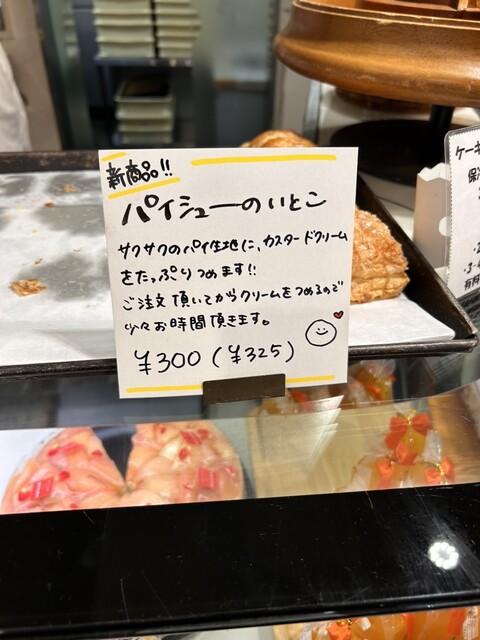 新商品!!
パイシューのいとこ
サクサクのパイ生地に、カスタードクリーム
をたっぷりつめます!!
ご注文頂いてからクリームをつめるので
少々お時間頂きます。
¥300(¥325)
ケーキ